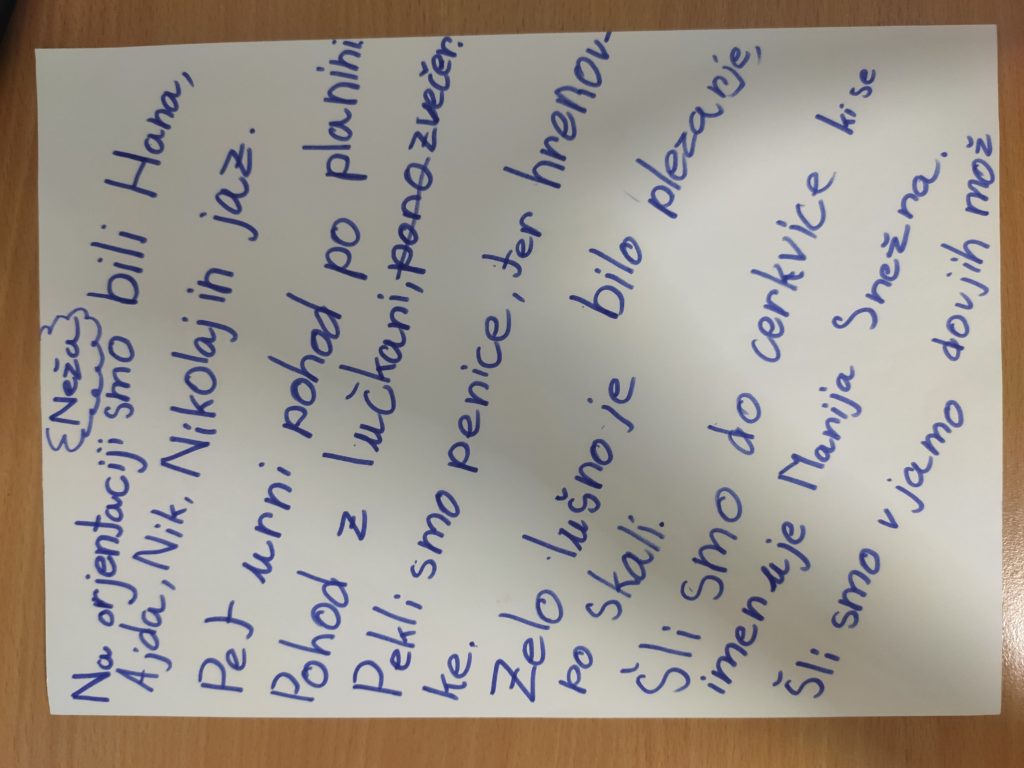 Neža
Na orjentaciji smo bili Hana,
Ajda, Nik, Nikolaj in jaz.
Pet urni pohod po planini
Pohod z lučkani, pono zvečer.
Pekli smo penice, ter hrenov-
ke.
Zelo lušno je bilo plezanje,
po skali.
Šli smo do cerkvice ki se
imenuje Marija Snežna.
Šli smo v jamo dovjih mož